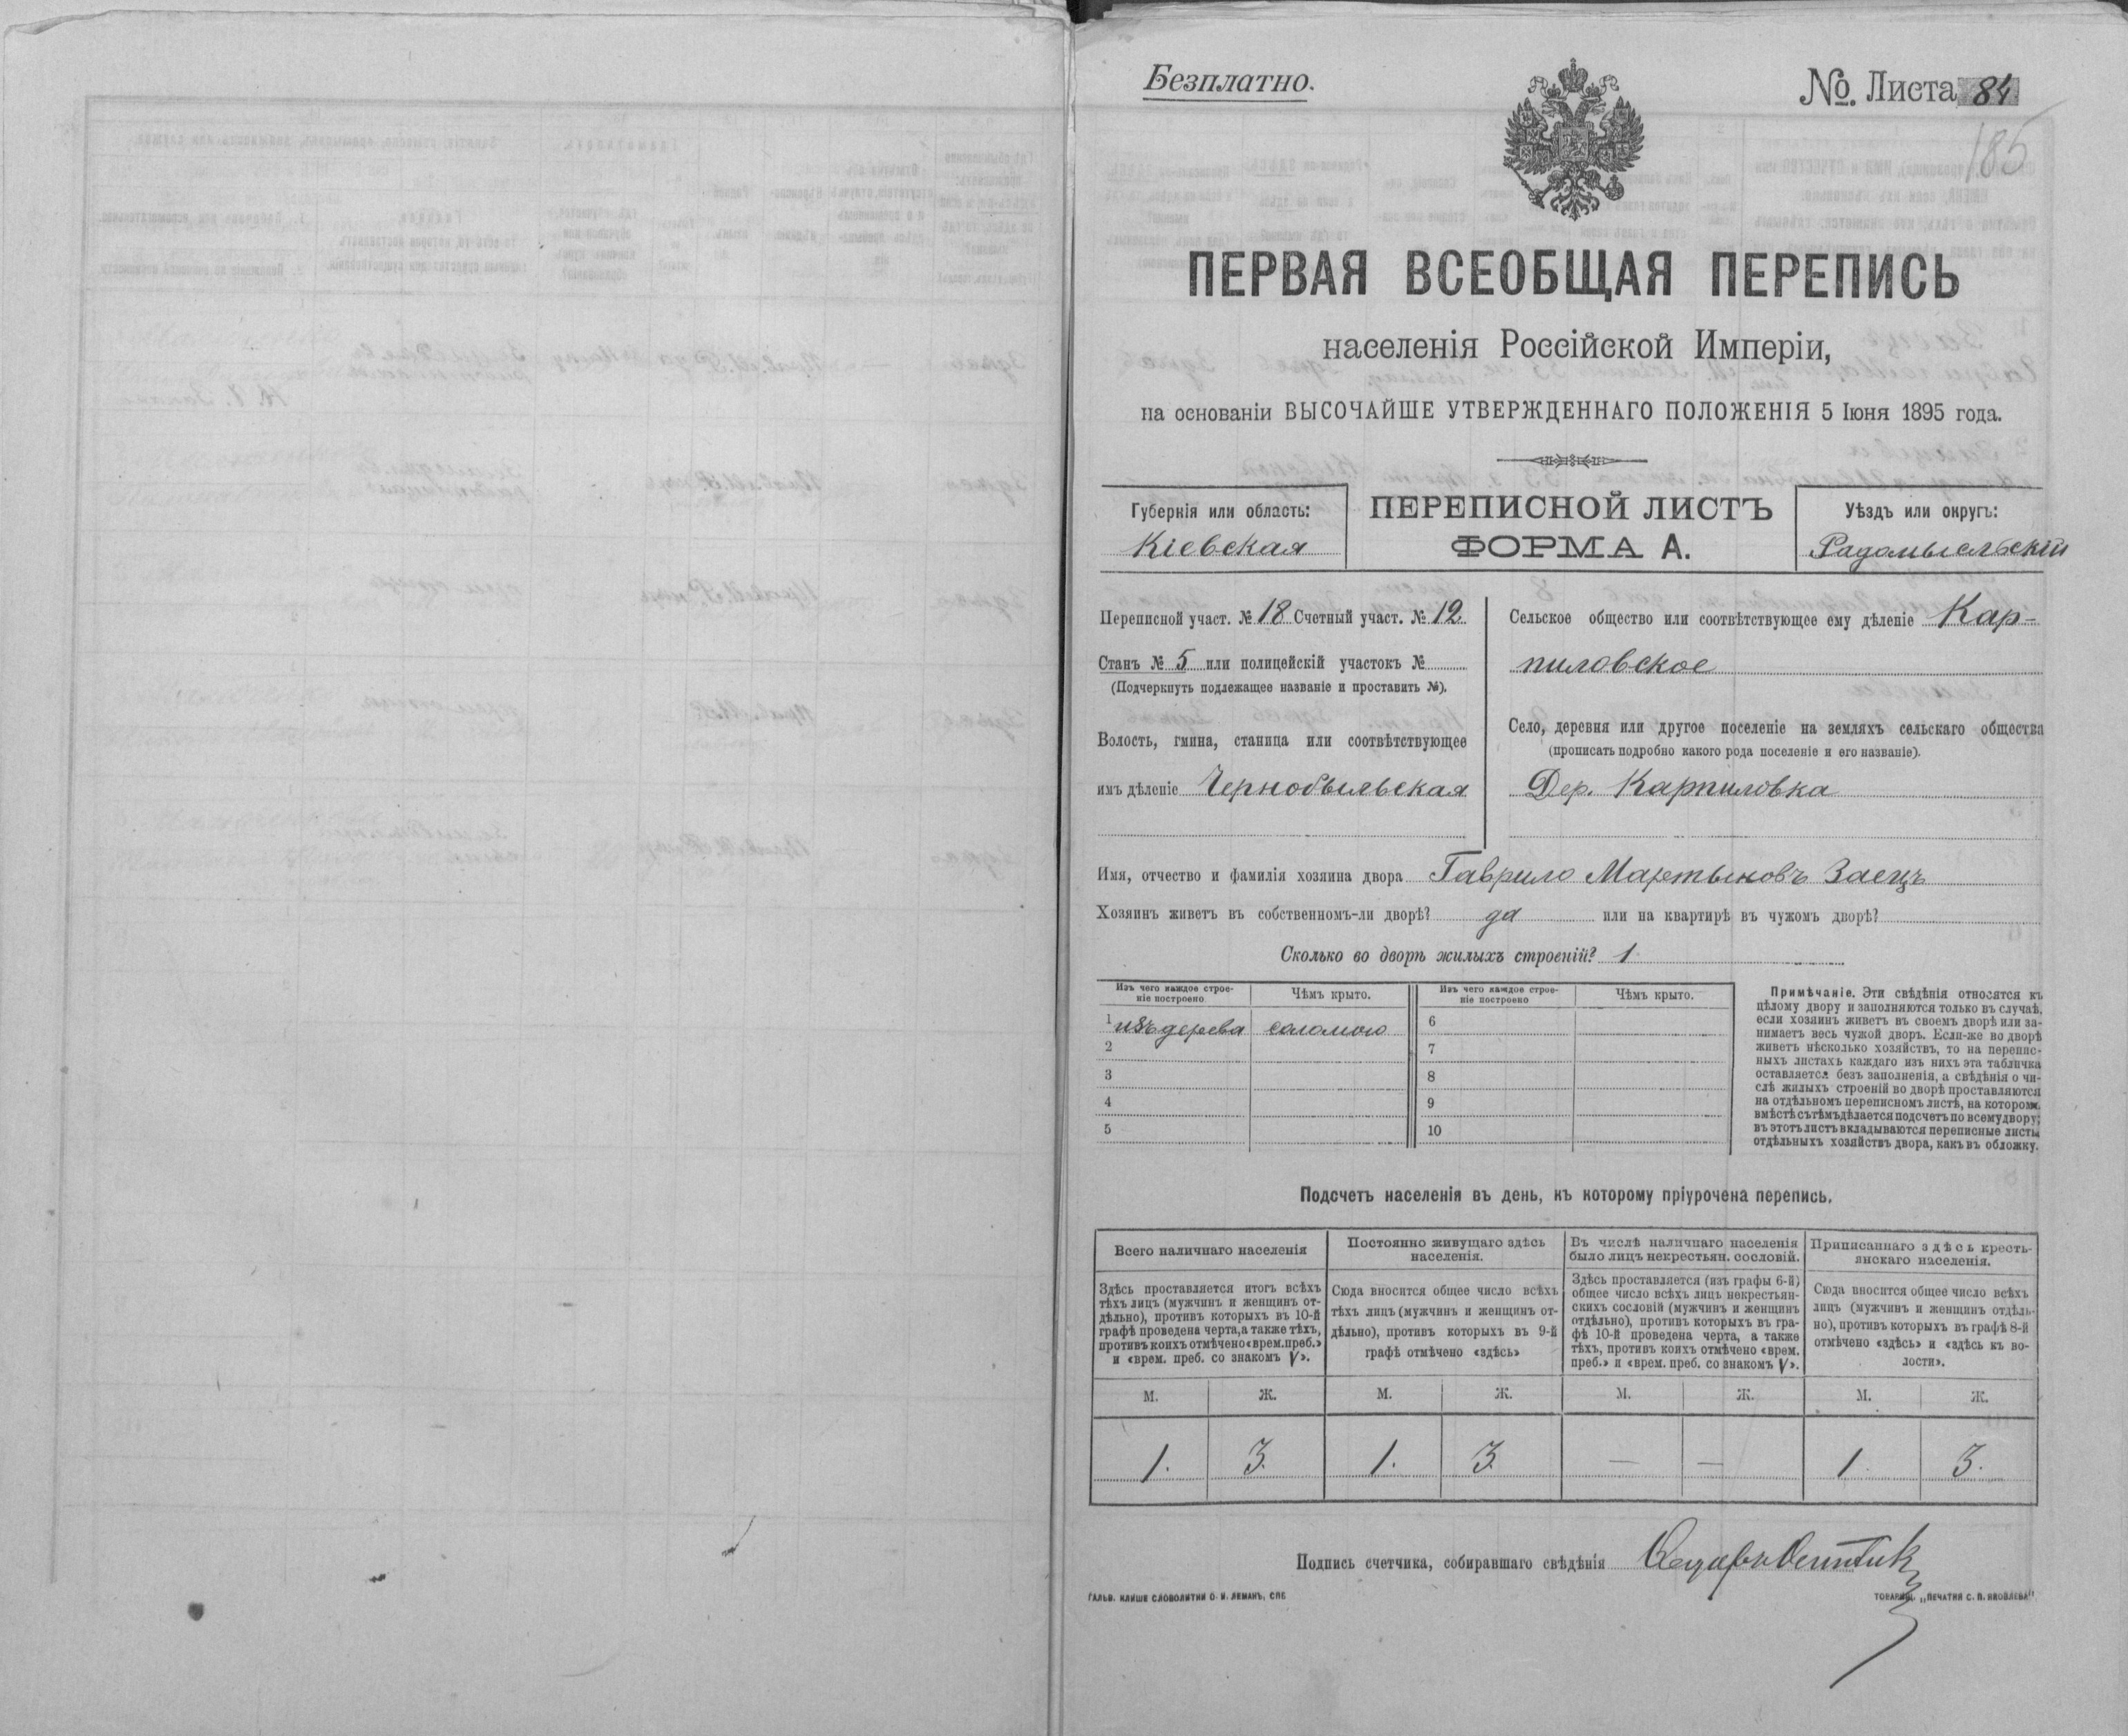 Безплатно.
№. Листа 84
185
ПЕРВАЯ ВСЕОБЩАЯ ПЕРЕПИСЬ
населенія Россійской Имперіи,
на основаніи ВЫСОЧАЙШЕ УТВЕРЖДЕННАГО ПОЛОЖЕНІЯ 5 Іюня 1895 года.
Губернія или область:
Кіевская
ПЕРЕПИСНОЙ ЛИСТЪ
ФОРМА А.
Уѣздъ или округъ:
Радомысльскій
Переписной участ. № 18 Счетный участ. № 12
Станъ № 5 или полицейскій участокъ №
(Подчеркнуть подлежащее названіе и проставить №).
Волость, гмина, станица или соотвѣтствующее
имъ дѣленіе Чернобыльская
Сельское общество или соотвѣтствующее ему дѣленіе Кар-
пиловское
Село, деревня или другое поселеніе на земляхъ сельскаго общества
(прописать подробно какого рода поселеніе и его названіе).
Дер. Карпиловка
Имя, отчество и фамилія хозяина двора Гаврило Мартыновъ Заецъ
Хозяинъ живетъ въ собственномъ-ли дворѣ? да или на квартирѣ въ чужомъ дворѣ?
Сколько во дворѣ жилыхъ строеній? 1.
Изъ чего каждое строе-
ніе построено
Чѣмъ крыто.
Изъ чего каждое строе-
ніе построено
Чѣмъ крыто.
1 изъ дерева соломою 6
2 7
3 8
4 9
5 10
Примѣчаніе. Эти свѣдѣнія относятся къ
цѣлому двору и заполняются только въ случаѣ,
если хозяинъ живетъ въ своемъ дворѣ или за-
нимаетъ весь чужой дворъ. Если-же во дворѣ
живетъ нѣсколько хозяйствъ, то на перепис-
ныхъ листахъ каждаго изъ нихъ эта табличка
оставляется безъ заполненія, а свѣдѣнія о чи-
слѣ жилыхъ строеній во дворѣ проставляются
на отдѣльномъ переписномъ листѣ, на которомъ
вмѣстѣ съ тѣмъ дѣлается подсчетъ по всему двору;
въ этотъ листъ вкладываются переписные листы
отдѣльныхъ хозяйствъ двора, какъ въ обложку.
Подсчетъ населенія въ день, къ которому пріурочена перепись.
Всего наличнаго населенія
Здѣсь проставляется итогъ всѣхъ
тѣхъ лицъ (мужчинъ и женщинъ от-
дѣльно), противъ которыхъ въ 10-й
графѣ проведена черта, а также тѣхъ,
противъ коихъ отмѣчено «врем. преб.»
и «врем. преб. со знакомъ V».
Постоянно живущаго здѣсь
населенія.
Сюда вносится общее число всѣхъ
тѣхъ лицъ (мужчинъ и женщинъ от-
дѣльно), противъ которыхъ въ 9-й
графѣ отмѣчено «здѣсь»
Въ числѣ наличнаго населенія
было лицъ некрестьян. сословій.
Здѣсь проставляется (изъ графы 6-й)
общее число всѣхъ лицъ некрестьян-
скихъ сословій (мужчинъ и женщинъ
отдѣльно), противъ которыхъ въ гра-
фѣ 10-й проведена черта, а также
тѣхъ, противъ коихъ отмѣчено «врем.
преб.» и «врем. преб. со знакомъ V».
Приписаннаго здѣсь кресть-
янскаго населенія.
Сюда вносится общее число всѣхъ
лицъ (мужчинъ и женщинъ отдѣль-
но), противъ которыхъ въ графѣ 8-й
отмѣчено «здѣсь» и «здѣсь къ во-
лости».
М. Ж. М. Ж. М. Ж. М. Ж.
1. 3. 1. 3 — — 1. 3.
Подпись счетчика, собиравшаго свѣдѣнія
ГАЛЬВ. КЛИШЕ СЛОВОЛИТНИ О. И. ЛЕМАНЪ, СПБ
ТОВАРИЩ. „ПЕЧАТНЯ С. П. ЯКОВЛЕВА"